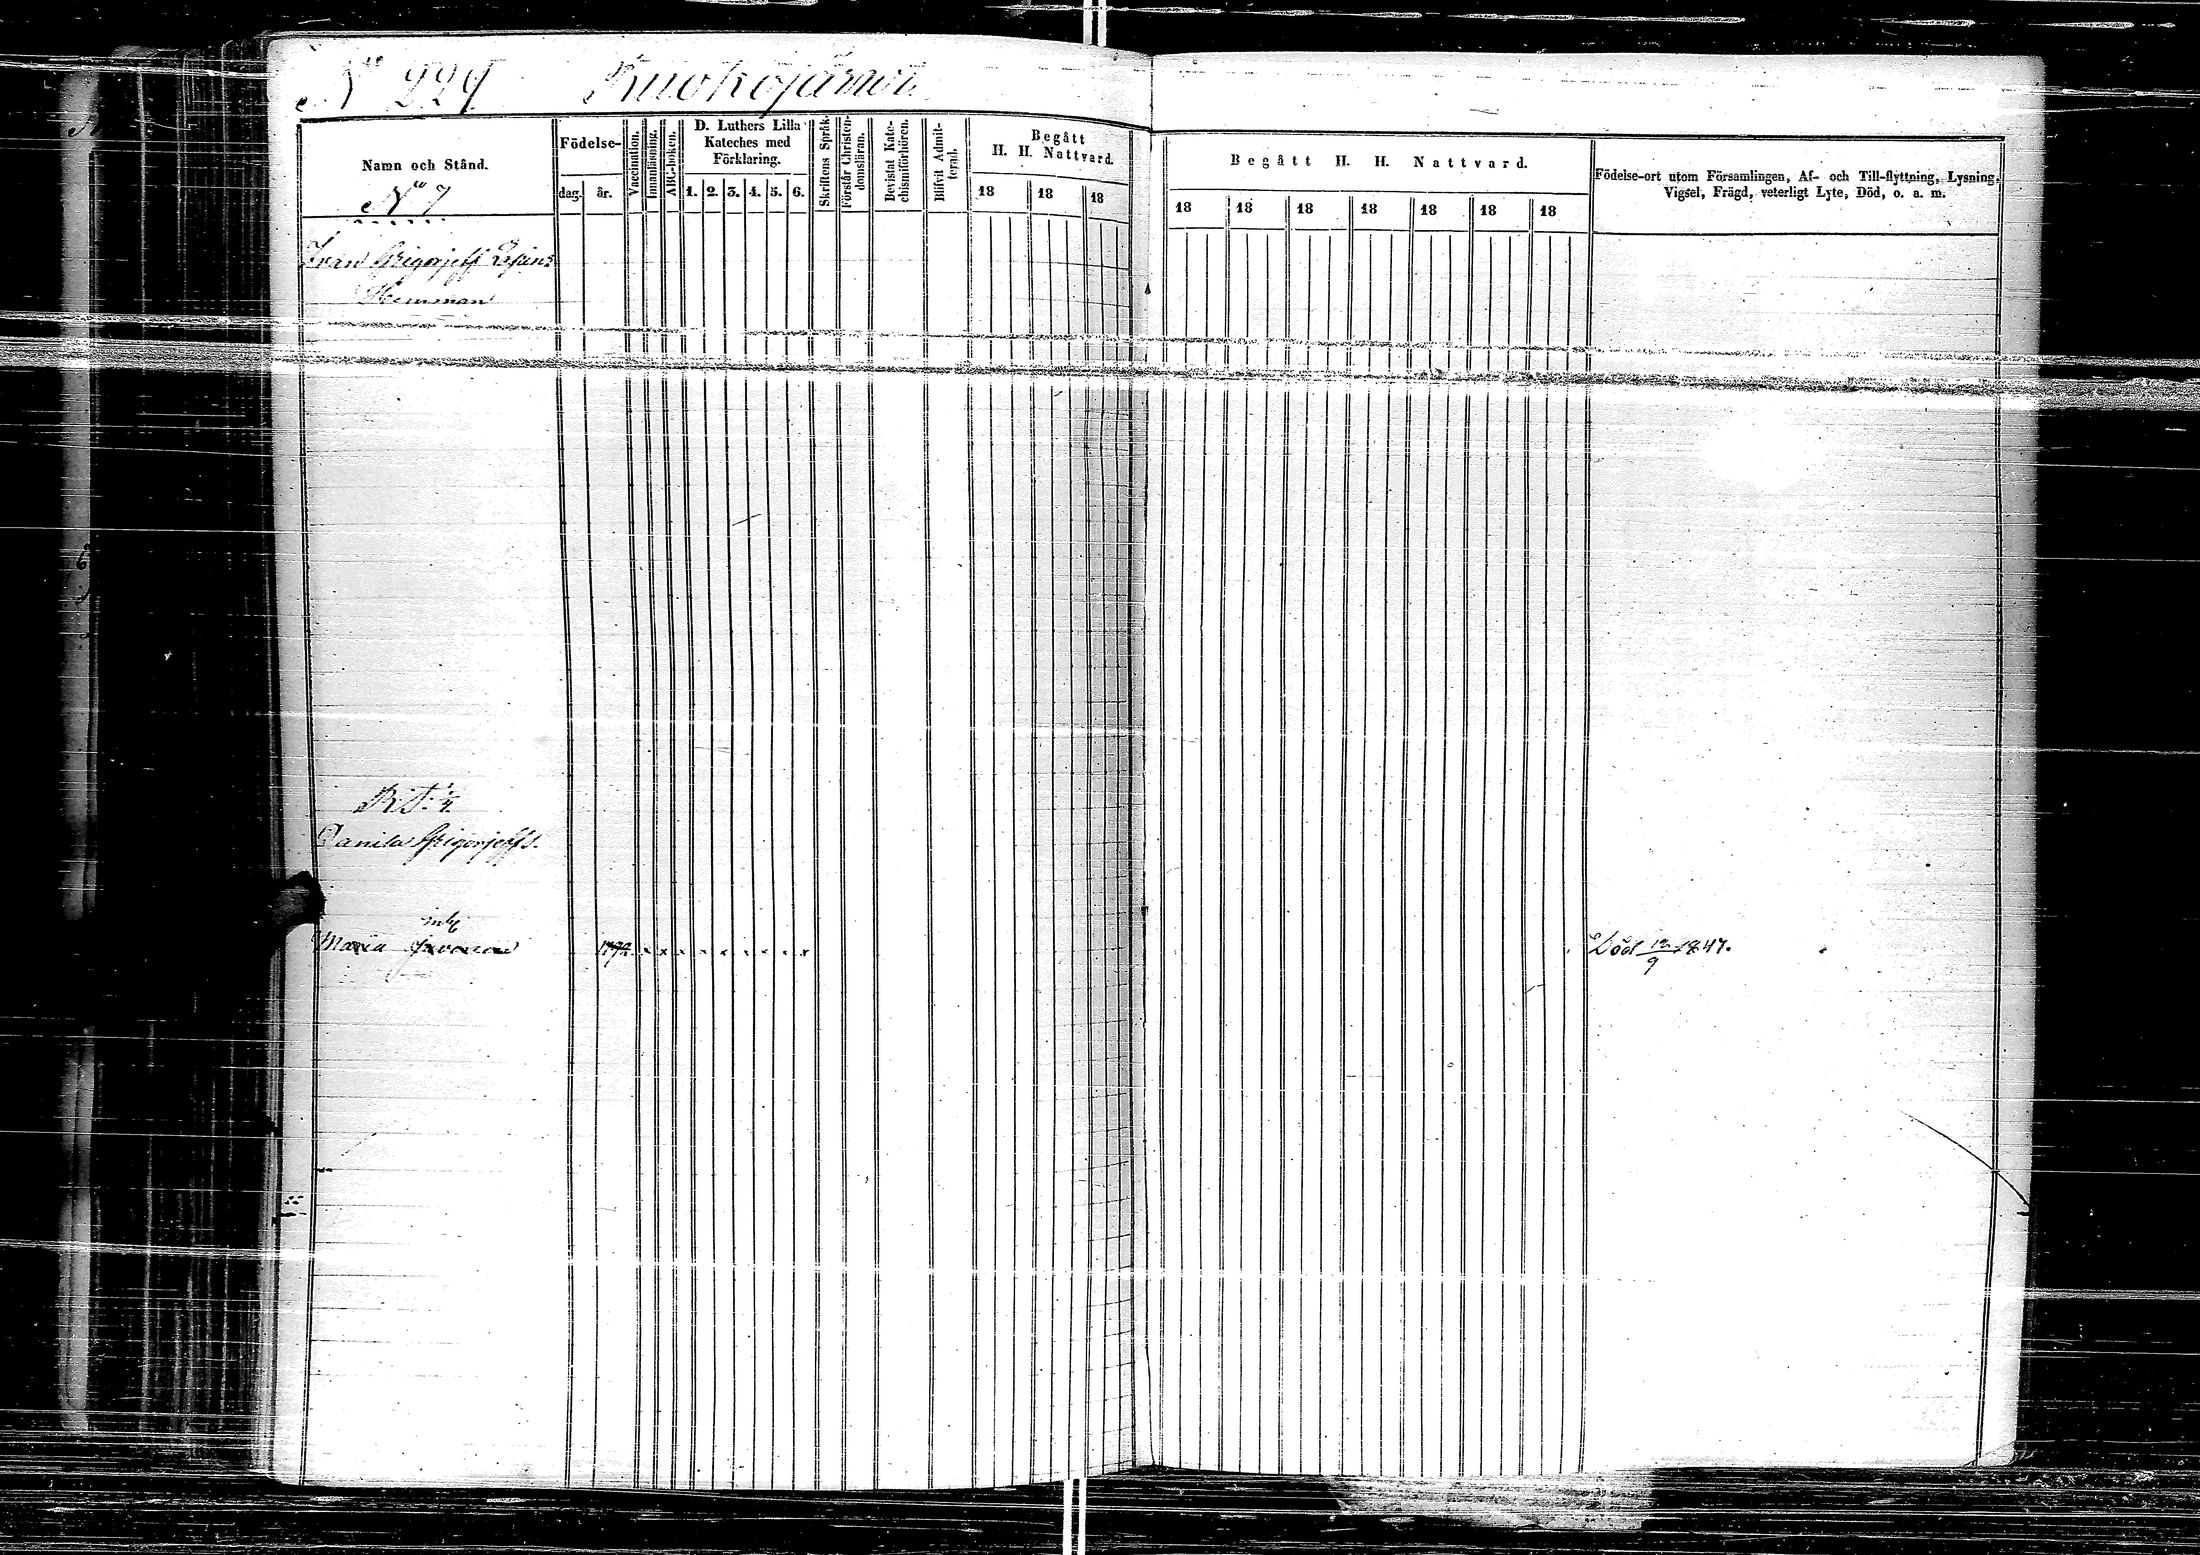 No 229 Kuokojärvi.
Namn och Stånd.
No 7
Födelse-
dag.
år.
Vaccination.
Innanläsning.
ABC-boken.
D. Luthers Lilla
Kateches med
Förklaring.
1. 2. 3. 4. 5. 6.
Skriftens Språk.
Förstår Christen-
domsläran.
Bevistat Kate-
chismiförhören.
Blifvit Admit-
terad.
Begått
H. H. Nattvard.
18 18 18
Begått H. H. Nattvard.
18 18 18 18 18 18 18
Födelse-ort utom Församlingen, Af- och Till-flyttning, Lysning,
Vigsel, Frägd, veterligt Lyte, Död, o. a. m.
Ivan Grigorjeff
Hemman
Danila Grigorjeffs.
Maria x x x x x x x x x Död 12/9 1847.